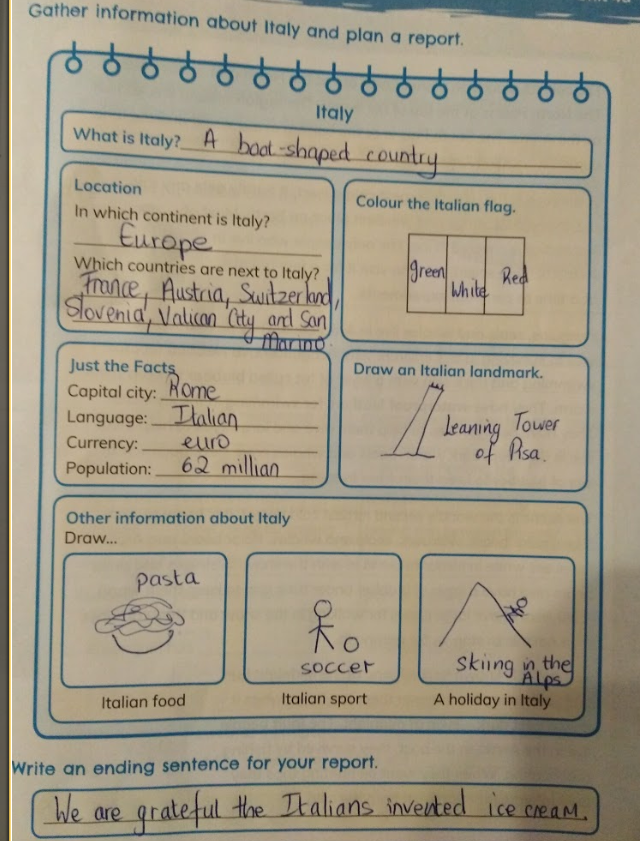 Gather information about Italy and plan a report.
Italy
What is Italy? A boot-shaped country
Location
In which continent is Italy?
Europe
Which countries are next to Italy?
France, Austria, Switzerland,
Slovenia, Vatican City and San
Marino.
Colour the Italian flag.
green White Red
Just the Facts
Capital city: Rome
Language: Italian
Currency: euro
Population: 62 millian
Draw an Italian landmark.
Leaning Tower
of Pisa.
Other information about Italy
Draw...
pasta
Italian food
soccer
Italian sport
Skiing in the
Alps
A holiday in Italy
Write an ending sentence for your report.
We are grateful the Italians invented ice cream.